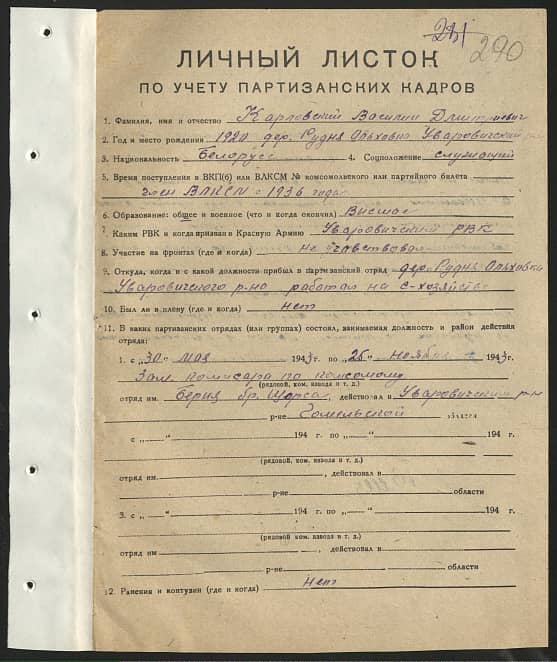 290
ЛИЧНЫЙ ЛИСТОК
ПО УЧЕТУ ПАРТИЗАНСКИХ КАДРОВ
1. Фамилия, имя и отчество Карловский Василий Дмитриевич
2. Год и место рождения 1920 дер. Рудня Ольховка Уваровичский
3. Национальность Белорусс 4. Соцположение служащий
5. Время поступления в ВКП(б) или ВЛКСМ № комсомольского или партийного билета
член ВЛКСМ с 1936 года
6. Образование: общее и военное (что и когда окончил) Высшее
7. Каким РВК и когда призван в Красную Армию Уваровичский РВК
8. Участие на фронтах (где и когда) не участвовал
9. Откуда, когда и с какой должности прибыл в партизанский отряд дер. Рудня Ольховка
Уваровичского р-на работал на с-хозяйстве
10. Был ли в плену (где и когда) нет
11. В каких партизанских отрядах (или группах) состоял, занимаемая должность и район действия
отряда:
1. с „30“ мая 1943 г. по „26“ ноября 1943 г.
Зам. комисара по комсомолу
(рядовой, ком. взвода и т. д.)
отряд им. Берия бр. Щорса, действовал в Уваровичским р-н
р-не Гомельской области
с „ “ 194 г. по „ “ 194 г.
(рядовой, ком. взвода и т. д.)
отряд им. , действовал в
р-не области
3. с „ “ 194 г. по „ “ 194 г.
(рядовой, ком. взвода и т. д.)
отряд им , действовал в
р-не области
12. Ранения и контузии (где и когда) Нет